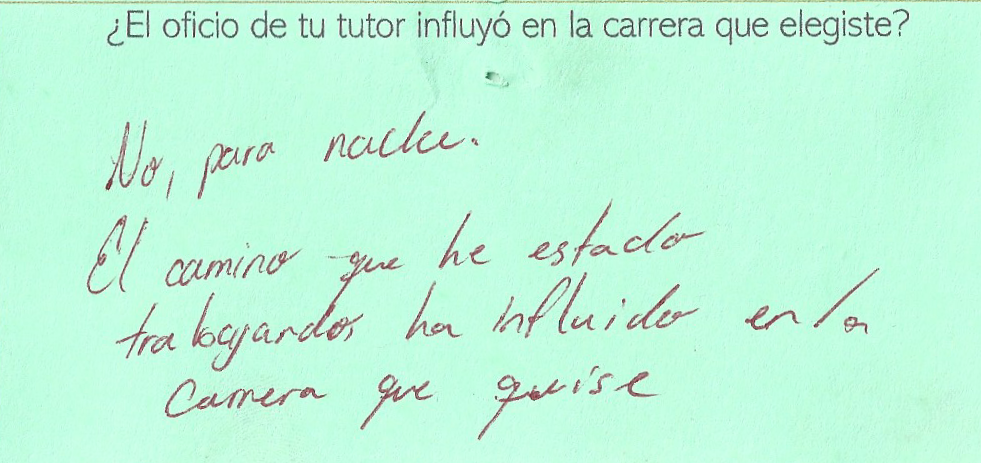 ¿El oficio de tu tutor influyó en la carrera que elegiste?
No, para nada.
El camino que he estado
trabajando, ha influido en la
carrera que quise